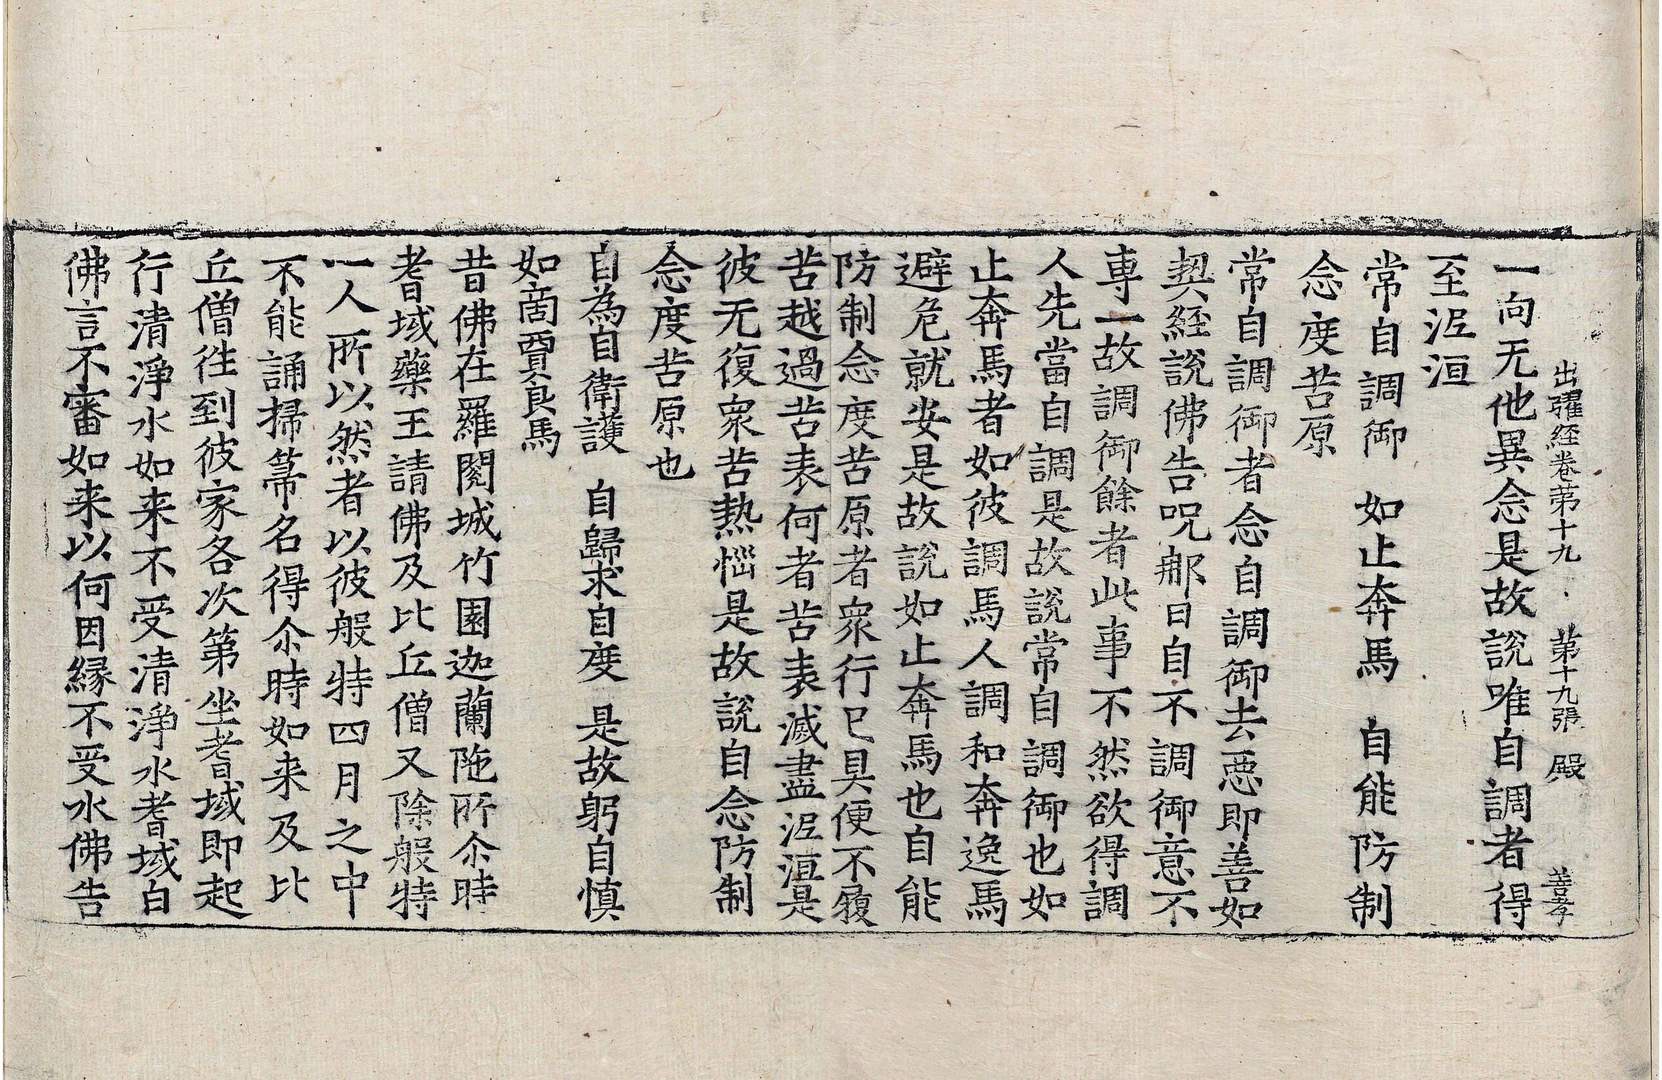 出曜經卷第十九 第十九張 殿 善孝
一向无他異念是故說唯自調者得
至泥洹
常自調御 如止奔馬 自能防制
念度苦原
常自調御者念自調御去惡即善如
契經說佛告呪那曰自不調御意不
專一故調御餘者此事不然欲得調
人先當自調是故說常自調御也如
止奔馬者如彼調馬人調和奔逸馬
避危就安是故說如止奔馬也自能
防制念度苦原者衆行已具便不履
苦越過苦表何者苦表滅盡泥洹是
彼无復衆苦熱惱是故說自念防制
念度苦原也
自為自衛護 自歸求自度 是故躬自慎
如啇賈良馬
昔佛在羅閱城竹園迦蘭陁所尒時
耆域藥王請佛及比丘僧又除般特
一人所以然者以彼般特四月之中
不能誦掃箒名得尒時如来及比
丘僧徃到彼家各次第坐耆域即起
行清淨水如来不受清淨水耆域白
佛言不審如来以何因縁不受水佛告